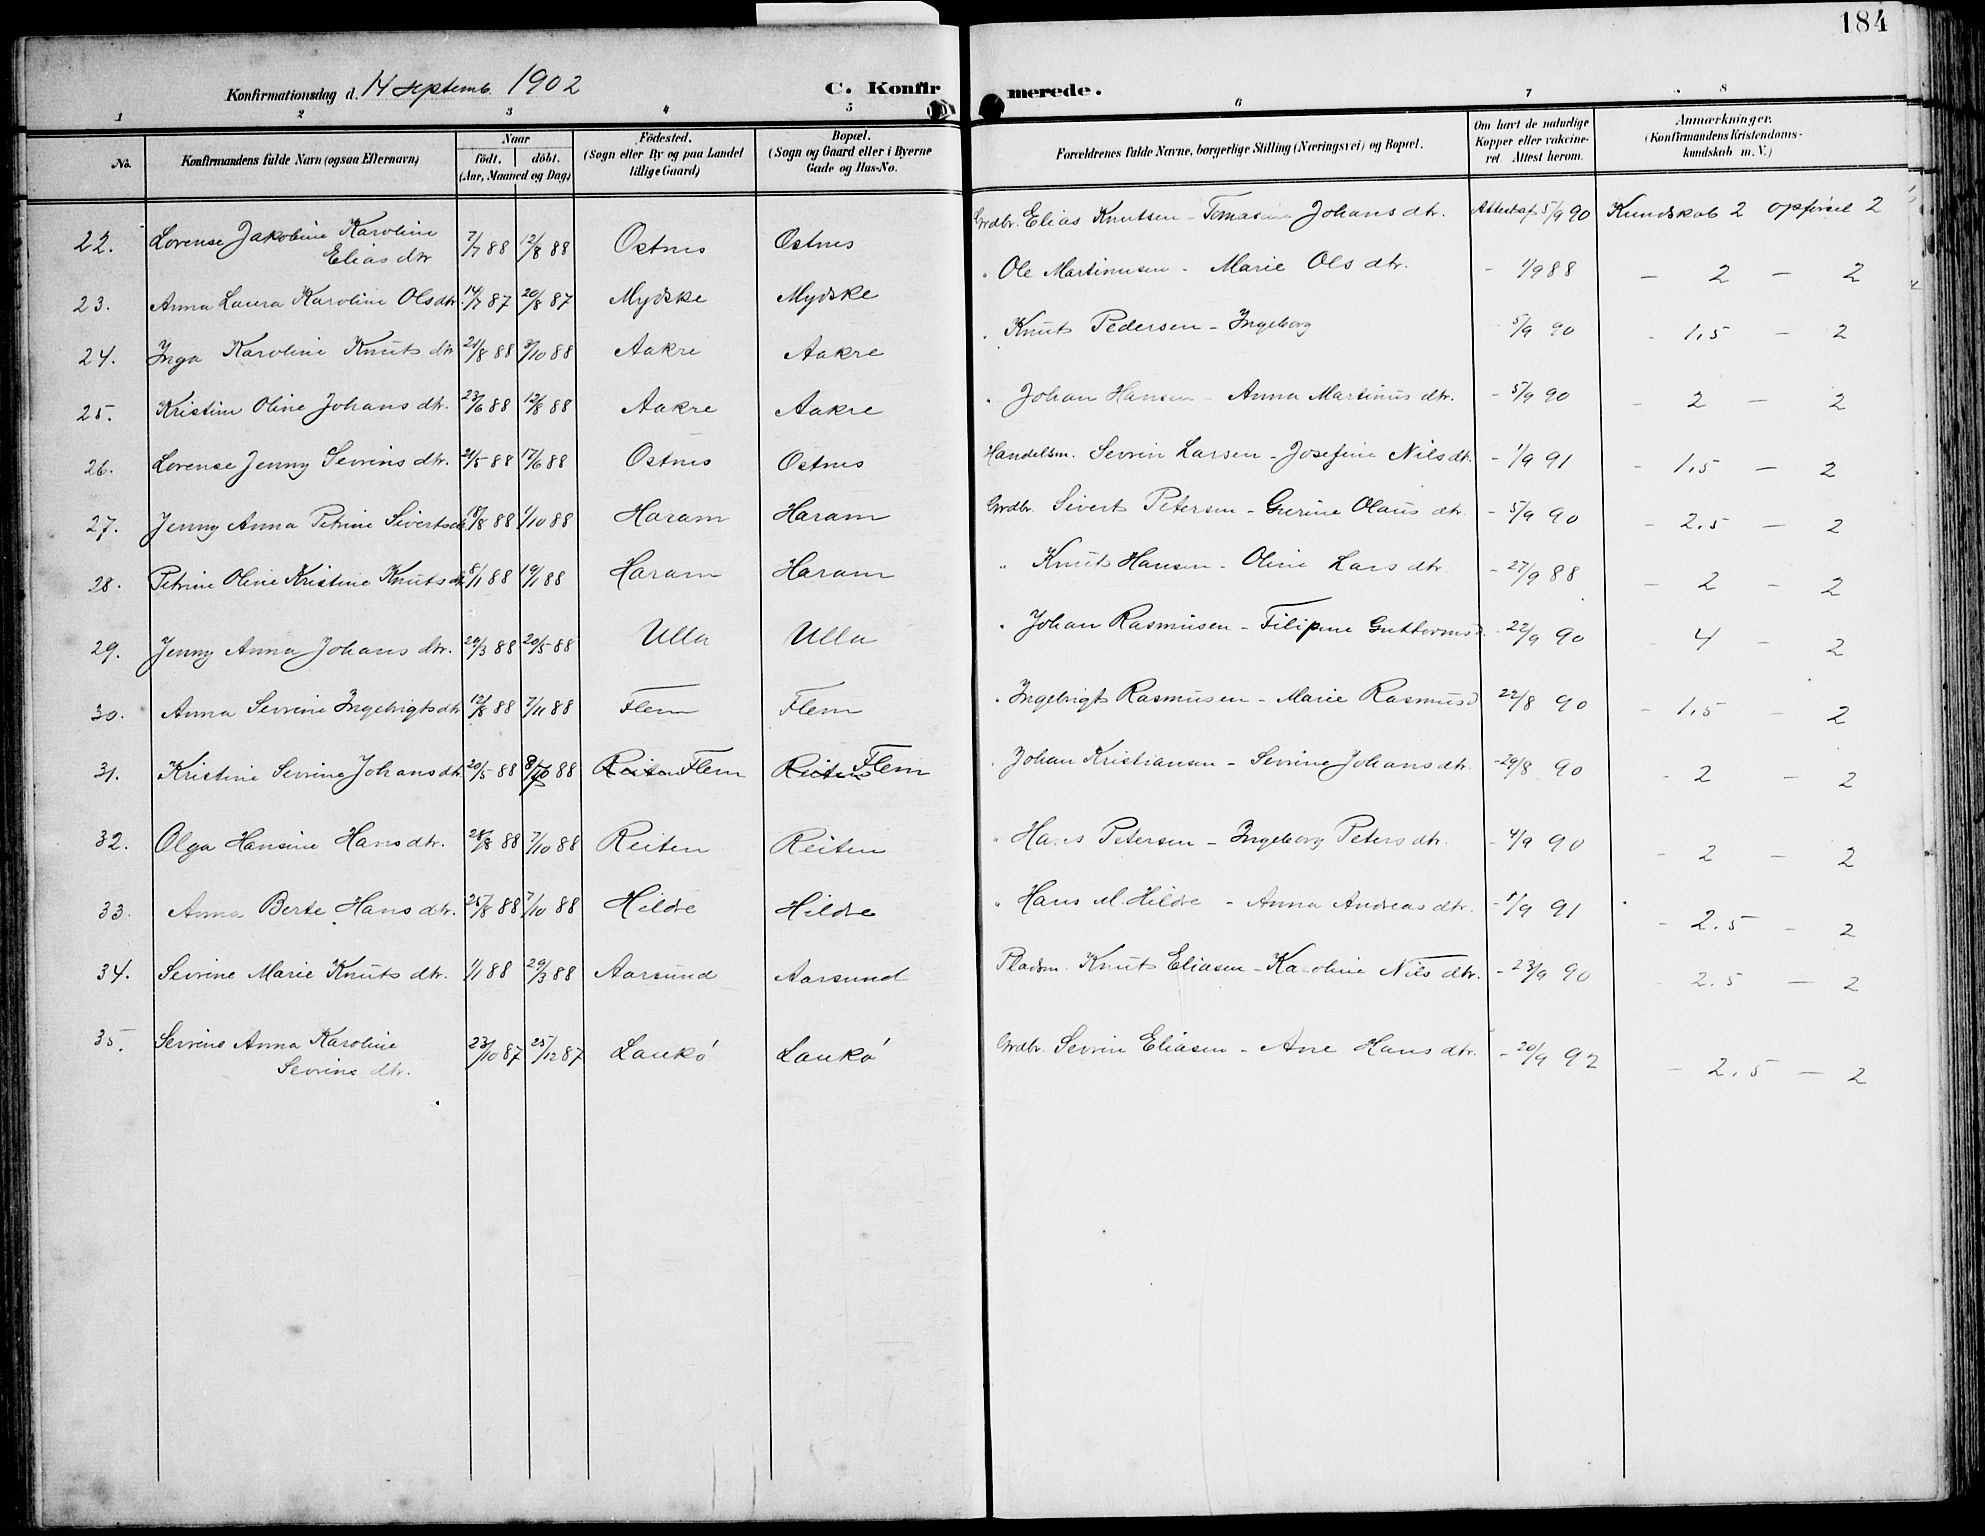 184
Konfirmationsdag d. 14 septemb. 1902 C. Konfirmerede.
1 2 3 4 5 6 7 8
No. Konfirmandens fulde Navn (ogsaa Efternavn) Naar födt. döbt. (Aar, Maaned og Dag) Födested. (Sogn eller By og paa Landet tillige Gaard) Bopæl. (Sogn og Gaard eller i Byerne Gade og Hus-No. Forældrenes fulde Navne, borgerlige Stilling (Næringsvei) og Bopæl. Om havt de naturlige Kopper eller vakcineret Attest herom. Anmærkninger. (Konfirmandens Kristendomskundskab m. V.)
22. Lorense Jakobine Karoline Elias dtr 7/7 88 12/8 88 Ostnes Ostnes Grdbr. Elias Knutsen - Tomasine Johans dtr. Attest af 5/9 90 Kundskab 2 opförsel 2
23. Anna Laura Karoline Ols dtr. 14/7 87 20/8 87 Mydske Mydske " Ole Martinusen - Marie Ols dtr. - 1/9 88 - 2 - 2
24. Inga Karoline Knuts dtr 21/8 88 /10 88 Aakre Aakre " Knut Pedersen - Ingeborg 5/9 90 - 1,5 - 2
25. Kristine Oline Johans dtr. 23/6 88 12/8 88 Aakre Aakre " Johan Hansen - Anna Martinus dtr. - 5/9 90 - 2 - 2
26. Lorense Jenny Sevrins dtr. 21/5 88 17/6 88 Ostnes Ostnes Handelsm. Sevrin Larsen - Josefine Nils dtr. - 1/9 91 - 1,5 - 2
27. Jenny Anna Petrine Siverts dtr /8 88 1/10 88 Haram Haram Grdbr. Sivert Petersen - Gurine Olaus dtr - 5/9 90 - 2.5 - 2
28. Petrine Oline Kristine Knuts dtr /1 88 /1 88 Haram Haram " Knut Hansen - Oline Lars dtr - 27/9 88 - 2 - 2
29. Jenny Anna Johans dtr. 29/3 88 20/5 88 Ulla Ulla " Johan Rasmusen - Filipine Guttormsd. - 22/9 90 - 4 - 2
30. Anna Sevrine Ingebrigts dtr 12/8 88 7/11 88 Flem Flem " Ingebrigt Rasmusen - Marie Rasmusd 22/8 90 - 1,5 - 2
31. Kristine Sevrine Johans dtr 20/5 88 8/7 88 Reiten Flem Reiten Flem " Johan Kristiansen - Sevrine Johans dtr. - 29/8 90 - 2 - 2
32. Olga Hansine Hans dtr. 28/8 88 7/10 88 Reiten Reiten " Hans Petersen - Ingeborg Peters dtr. - 4/9 90 - 2 - 2
33. Anna Berte Hans dtr. 25/8 88 7/10 88 Hildre Hildre " Hans M. Hildre - Anna Andreas dtr. - 1/9 91 - 2.5 - 2
34. Sevrine Marie Knuts dtr. 1/1 88 29/3 88 Aarsund Aarsund Pladsm. Knut Eliasen - Karoline Nils dtr. - 23/9 90 - 2.5 - 2
35. Sevrine Anna Karoline Sevrins dtr. 23/10 87 25/12 87 Laukö Laukö Grdbr. Sevrin Eliasen - Ane Hans dtr. - 20/9 92 - 2.5 - 2